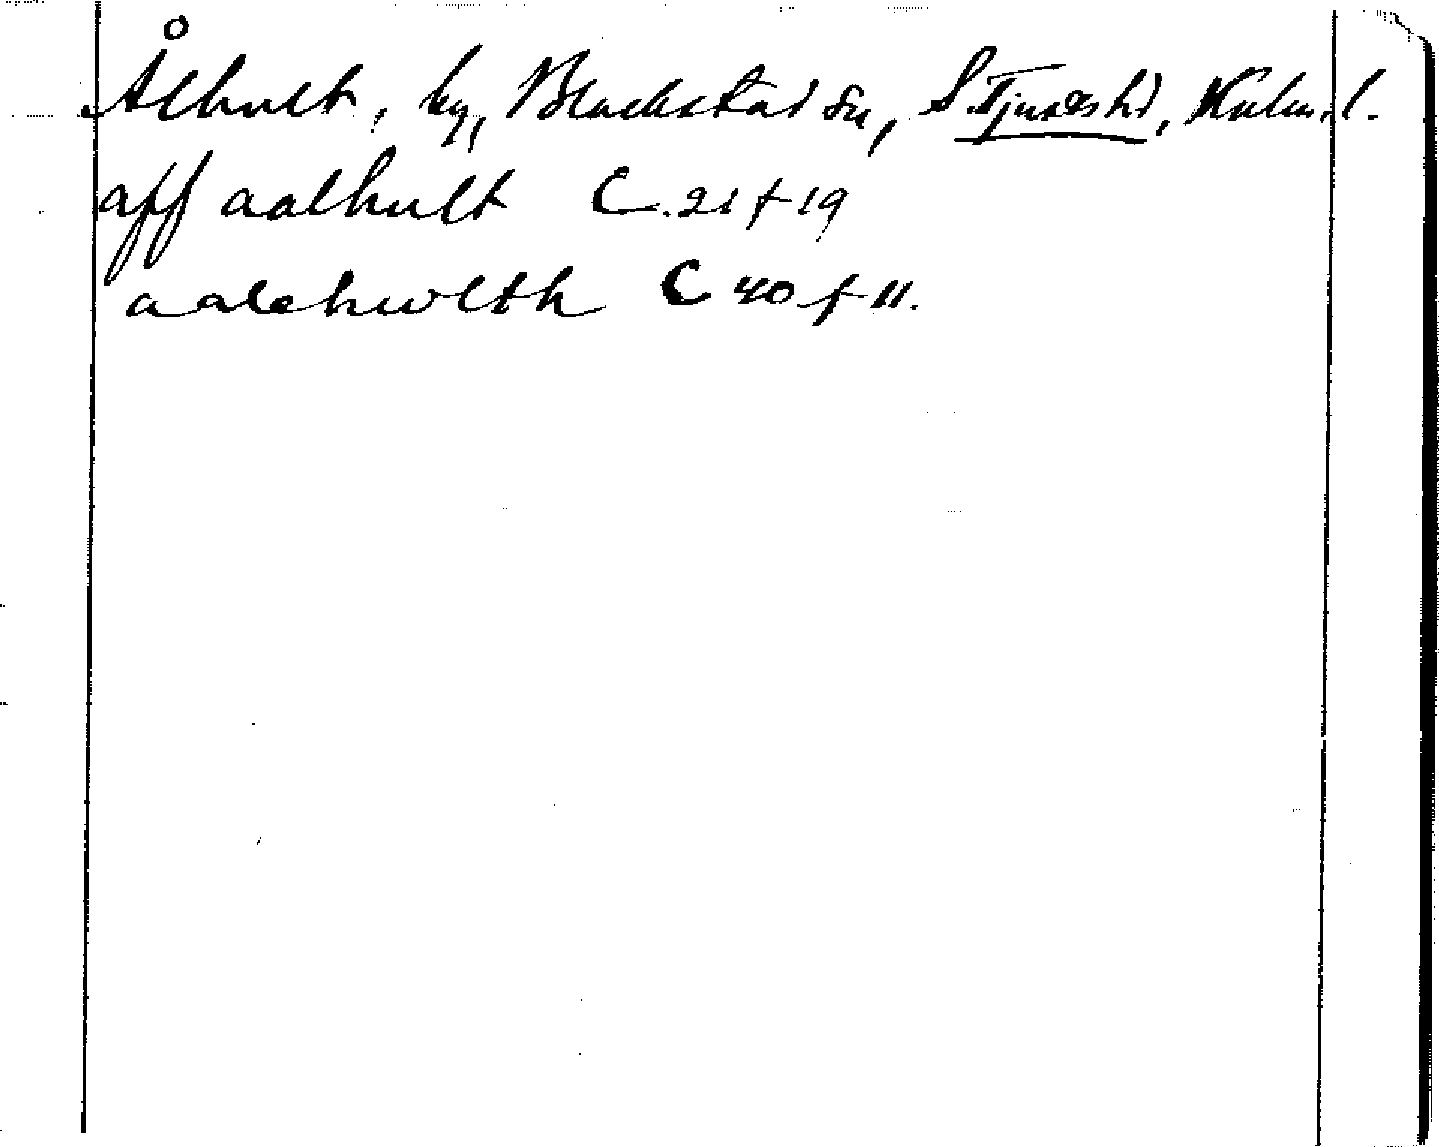 Ålhult, by, Blackstad sn, S Tjusts hd, Kalm. l.
aff aalhult C. 21 f 19
aalehwlth C 40 f 11.